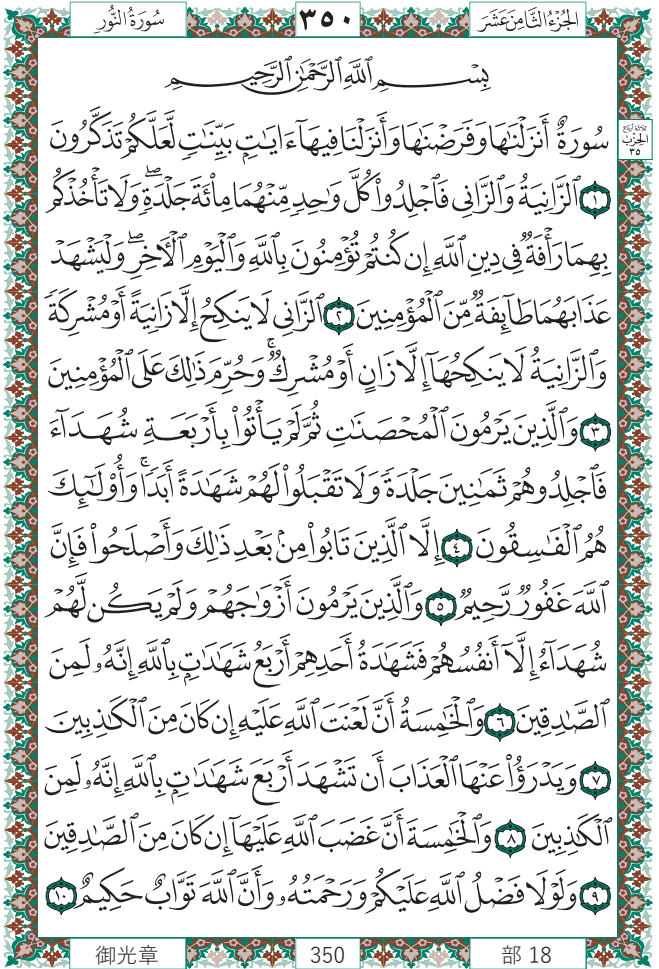 الجُزْءُ الثَّامِنَ عَشَرَ ٣٥٠ سُورَةُ النُّورِ
بِسْمِ ٱللَّهِ ٱلرَّحْمَٰنِ ٱلرَّحِيمِ
ثلاثة أرباع الحزب ٣٥
سُورَةٌ أَنزَلْنَٰهَا وَفَرَضْنَٰهَا وَأَنزَلْنَا فِيهَآ ءَايَٰتٍۭ بَيِّنَٰتٍ لَّعَلَّكُمْ تَذَكَّرُونَ
١ ٱلزَّانِيَةُ وَٱلزَّانِى فَٱجْلِدُوا۟ كُلَّ وَٰحِدٍ مِّنْهُمَا مِا۟ئَةَ جَلْدَةٍ ۖ وَلَا تَأْخُذْكُم
بِهِمَا رَأْفَةٌ فِى دِينِ ٱللَّهِ إِن كُنتُمْ تُؤْمِنُونَ بِٱللَّهِ وَٱلْيَوْمِ ٱلْءَاخِرِ ۖ وَلْيَشْهَدْ
عَذَابَهُمَا طَآئِفَةٌ مِّنَ ٱلْمُؤْمِنِينَ ٢ ٱلزَّانِى لَا يَنكِحُ إِلَّا زَانِيَةً أَوْ مُشْرِكَةً
وَٱلزَّانِيَةُ لَا يَنكِحُهَآ إِلَّا زَانٍ أَوْ مُشْرِكٌ ۚ وَحُرِّمَ ذَٰلِكَ عَلَى ٱلْمُؤْمِنِينَ
٣ وَٱلَّذِينَ يَرْمُونَ ٱلْمُحْصَنَٰتِ ثُمَّ لَمْ يَأْتُوا۟ بِأَرْبَعَةِ شُهَدَآءَ
فَٱجْلِدُوهُمْ ثَمَٰنِينَ جَلْدَةً وَلَا تَقْبَلُوا۟ لَهُمْ شَهَٰدَةً أَبَدًا ۚ وَأُو۟لَٰٓئِكَ
هُمُ ٱلْفَٰسِقُونَ ٤ إِلَّا ٱلَّذِينَ تَابُوا۟ مِنۢ بَعْدِ ذَٰلِكَ وَأَصْلَحُوا۟ فَإِنَّ
ٱللَّهَ غَفُورٌ رَّحِيمٌ ٥ وَٱلَّذِينَ يَرْمُونَ أَزْوَٰجَهُمْ وَلَمْ يَكُن لَّهُمْ
شُهَدَآءُ إِلَّآ أَنفُسُهُمْ فَشَهَٰدَةُ أَحَدِهِمْ أَرْبَعُ شَهَٰدَٰتٍۭ بِٱللَّهِ إِنَّهُۥ لَمِنَ
ٱلصَّٰدِقِينَ ٦ وَٱلْخَٰمِسَةُ أَنَّ لَعْنَتَ ٱللَّهِ عَلَيْهِ إِن كَانَ مِنَ ٱلْكَٰذِبِينَ
٧ وَيَدْرَؤُا۟ عَنْهَا ٱلْعَذَابَ أَن تَشْهَدَ أَرْبَعَ شَهَٰدَٰتٍۭ بِٱللَّهِ إِنَّهُۥ لَمِنَ
ٱلْكَٰذِبِينَ ٨ وَٱلْخَٰمِسَةَ أَنَّ غَضَبَ ٱللَّهِ عَلَيْهَآ إِن كَانَ مِنَ ٱلصَّٰدِقِينَ
٩ وَلَوْلَا فَضْلُ ٱللَّهِ عَلَيْكُمْ وَرَحْمَتُهُۥ وَأَنَّ ٱللَّهَ تَوَّابٌ حَكِيمٌ ١٠
御光章 350 部 18